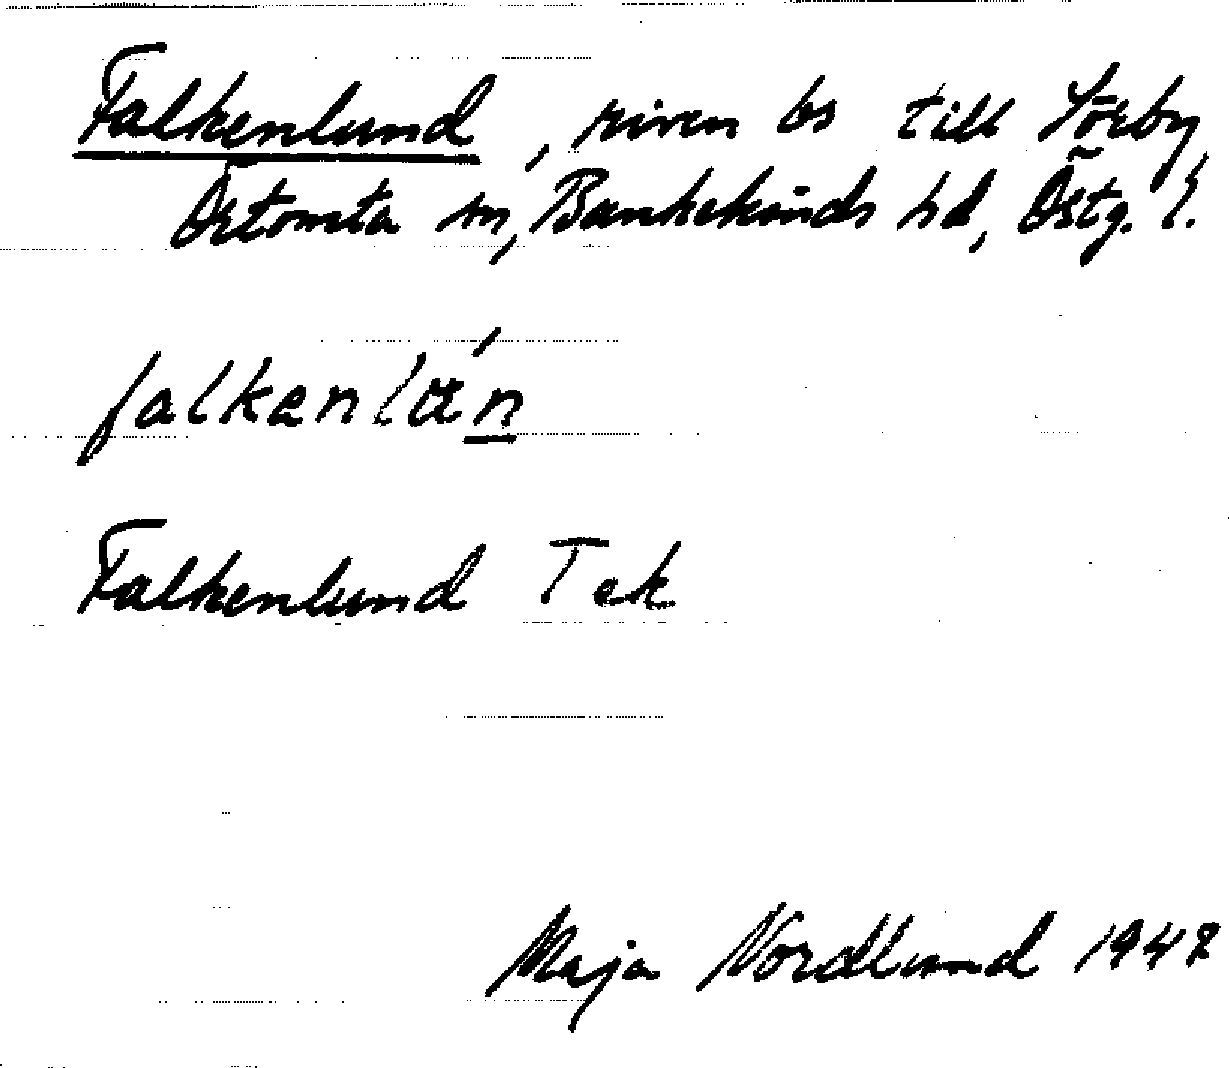 Falkenlund, riven bs till Sörby,
Örtomta sn, Bankekinds hd, Östg. l.
falkenlán
Falkenlund Tek
Maja Nordlund 1948